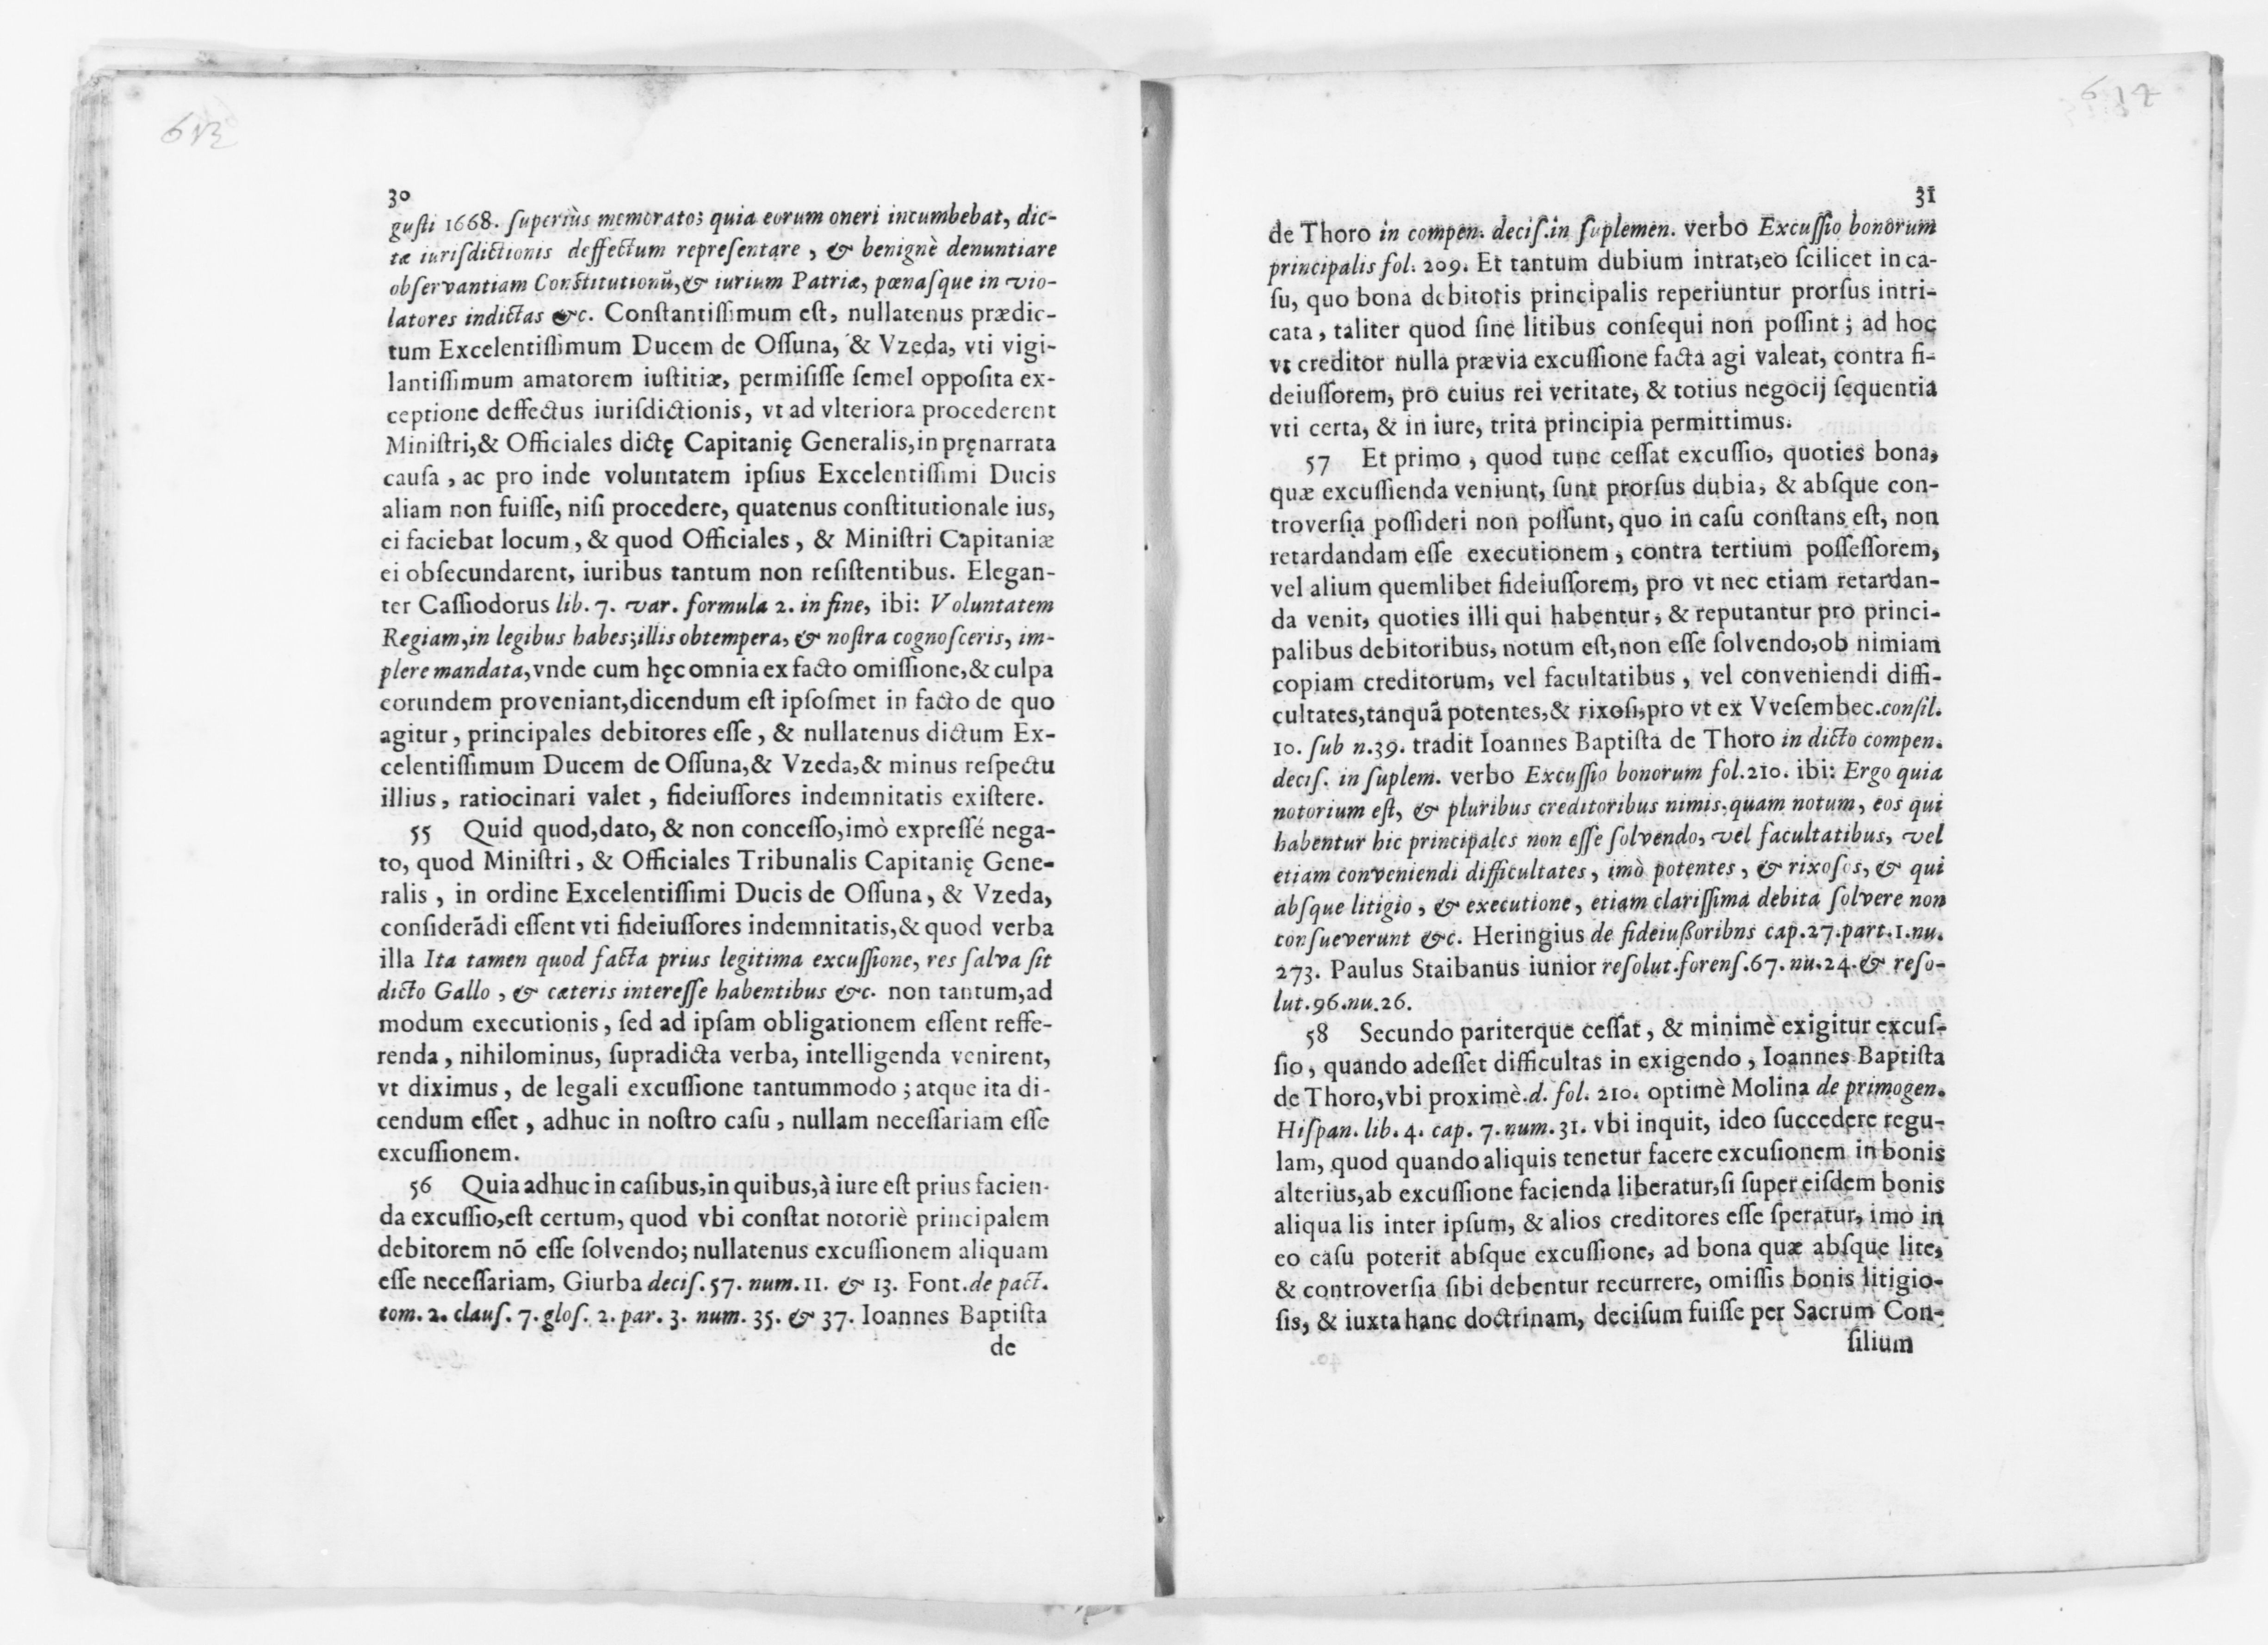 613
30
gusti 1668. superiùs memorato; quia eorum oneri incumbebat, dic-
tæ iurisdictionis deffectum representare, & benignè denuntiare
observantiam Constitutionũ,& iurium Patriæ, pœnasque in vio-
latores indictas &c. Constantissimum est, nullatenus prædic-
tum Excelentissimum Ducem de Ossuna, & Vzeda, vti vigi-
lantissimum amatorem iustitiæ, permisisse semel opposita ex-
ceptione deffectus iurisdictionis, vt ad vlteriora procederent
Ministri,& Officiales dictę Capitanię Generalis,in pręnarrata
causa, ac pro inde voluntatem ipsius Excelentissimi Ducis
aliam non fuisse, nisi procedere, quatenus constitutionale ius,
ei faciebat locum, & quod Officiales, & Ministri Capitaniæ
ei obsecundarent, iuribus tantum non resistentibus. Elegan-
ter Cassiodorus lib. 7. var. formula 2. in fine, ibi: Voluntatem
Regiam,in legibus habes;illis obtempera, & nostra cognosceris, im-
plere mandata,vnde cum hęc omnia ex facto omissione,& culpa
eorundem proveniant,dicendum est ipsosmet in facto de quo
agitur, principales debitores esse, & nullatenus dictum Ex-
celentissimum Ducem de Ossuna,& Vzeda,& minus respectu
illius, ratiocinari valet, fideiussores indemnitatis existere.
55 Quid quod,dato, & non concesso,imò expressé nega-
to, quod Ministri, & Officiales Tribunalis Capitanię Gene-
ralis, in ordine Excelentissimi Ducis de Ossuna, & Vzeda,
considerãdi essent vti fideiussores indemnitatis,& quod verba
illa Ita tamen quod facta prius legitima excussione, res salva sit
dicto Gallo, & cæteris interesse habentibus &c. non tantum,ad
modum executionis, sed ad ipsam obligationem essent reffe-
renda, nihilominus, supradicta verba, intelligenda venirent,
vt diximus, de legali excussione tantummodo; atque ita di-
cendum esset, adhuc in nostro casu, nullam necessariam esse
excussionem.
56 Quia adhuc in casibus,in quibus,à iure est prius facien-
da excussio,est certum, quod vbi constat notoriè principalem
debitorem nõ esse solvendo; nullatenus excussionem aliquam
esse necessariam, Giurba decis. 57. num. 11. & 13. Font. de pact.
tom. 2. claus. 7. glos. 2. par. 3. num. 35. & 37. Ioannes Baptista
de
614
31
de Thoro in compen. decis. in suplemen. verbo Excussio bonorum
principalis fol. 209. Et tantum dubium intrat,eo scilicet in ca-
su, quo bona debitoris principalis reperiuntur prorsus intri-
cata, taliter quod sine litibus consequi non possint; ad hoc
vt creditor nulla prævia excussione facta agi valeat, contra fi-
deiussorem, pro cuius rei veritate, & totius negocij sequentia
vti certa, & in iure, trita principia permittimus.
57 Et primo, quod tunc cessat excussio, quoties bona,
quæ excussienda veniunt, sunt prorsus dubia, & absque con-
troversia possideri non possunt, quo in casu constans est, non
retardandam esse executionem, contra tertium possessorem,
vel alium quemlibet fideiussorem, pro vt nec etiam retardan-
da venit, quoties illi qui habentur, & reputantur pro princi-
palibus debitoribus, notum est,non esse solvendo,ob nimiam
copiam creditorum, vel facultatibus, vel conveniendi diffi-
cultates,tanquã potentes,& rixosi,pro vt ex Vvesembec.consil.
10. sub n.39. tradit Ioannes Baptista de Thoro in dicto compen.
decis. in suplem. verbo Excussio bonorum fol.210. ibi: Ergo quia
notorium est, & pluribus creditoribus nimis.quam notum, eos qui
habentur hic principales non esse solvendo, vel facultatibus, vel
etiam conveniendi difficultates, imò potentes, & rixosos, & qui
absque litigio, & executione, etiam clarissima debita solvere non
consueverunt &c. Heringius de fideiußoribns cap.27.part.1.nu.
273. Paulus Staibanus iunior resolut.forens.67.nu.24.& reso-
lut.96.nu.26.
58 Secundo pariterque cessat, & minimè exigitur excus-
sio, quando adesset difficultas in exigendo, Ioannes Baptista
de Thoro,vbi proximè.d. fol. 210. optimè Molina de primogen.
Hispan. lib. 4. cap. 7. num. 31. vbi inquit, ideo succedere regu-
lam, quod quando aliquis tenetur facere excusionem in bonis
alterius,ab excussione facienda liberatur,si super eisdem bonis
aliqua lis inter ipsum, & alios creditores esse speratur, imò in
eo casu poterit absque excussione, ad bona quæ absque lite,
& controversia sibi debentur recurrere, omissis bonis litigio-
sis, & iuxta hanc doctrinam, decisum fuisse per Sacrum Con-
silium